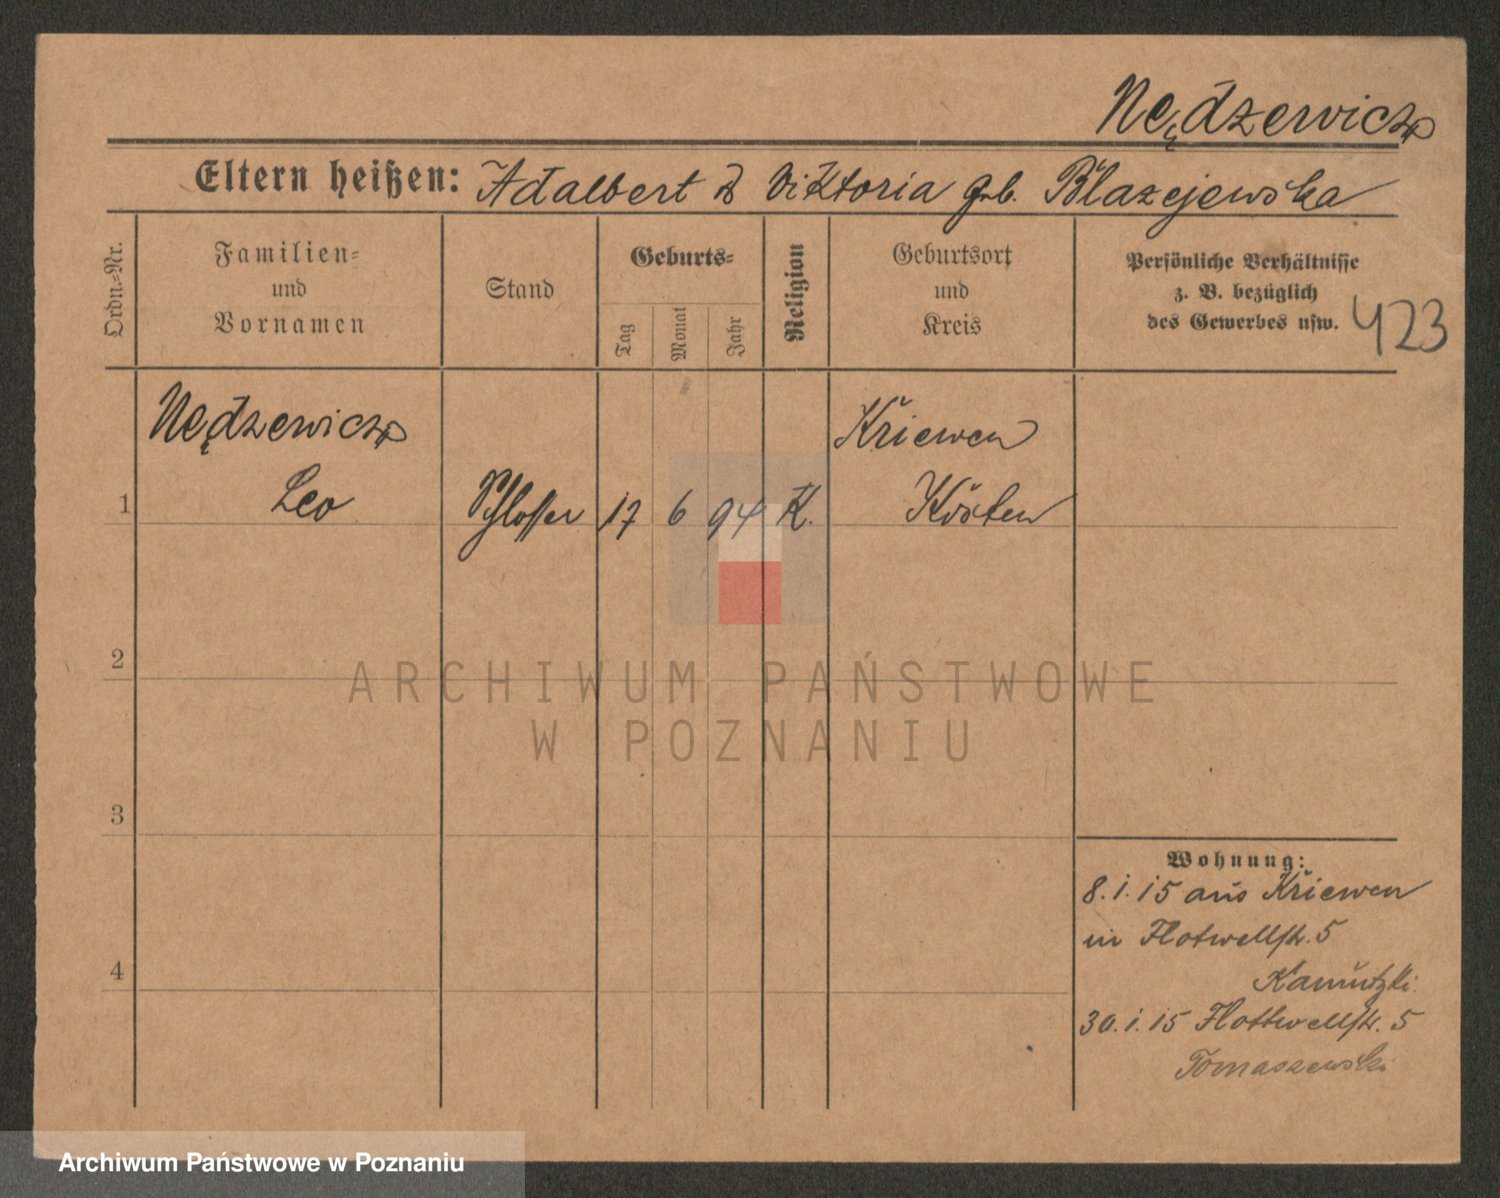 Nędzewicz
Eltern heißen: Adalbert & Viktoria geb. Blazejewska
Ordn.-Nr.
Familien-
und
Vornamen
Stand
Geburts-
Tag
Monat
Jahr
Religion
Geburtsort
und
Kreis
Persönliche Verhältnisse
z. B. bezüglich
des Gewerbes usw.
423
Nędzewicz
Kriewen
1 Leo Schlosser 17 6 94 K. Kosten
2
3
4
Wohnung:
8.1.15 aus Kriewen
in Flotwellstr. 5
30.1.15 Flottwellstr. 5
Tomaszewski
ARCHIWUM PAŃSTWOWE
W POZNANIU
Archiwum Państwowe w Poznaniu